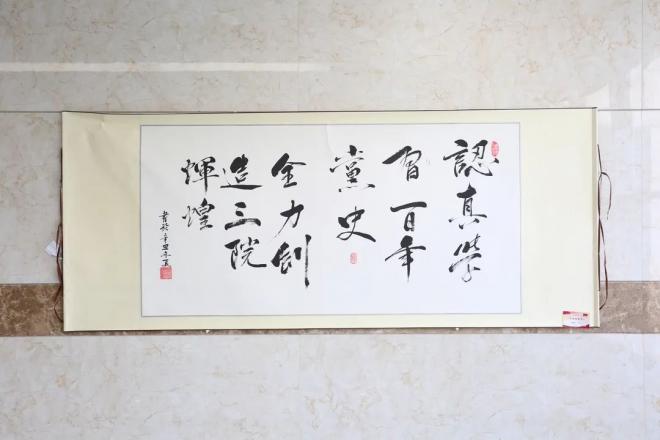 認真學
習百年
黨史
全力創
造三院
輝煌
書於辛丑冬月